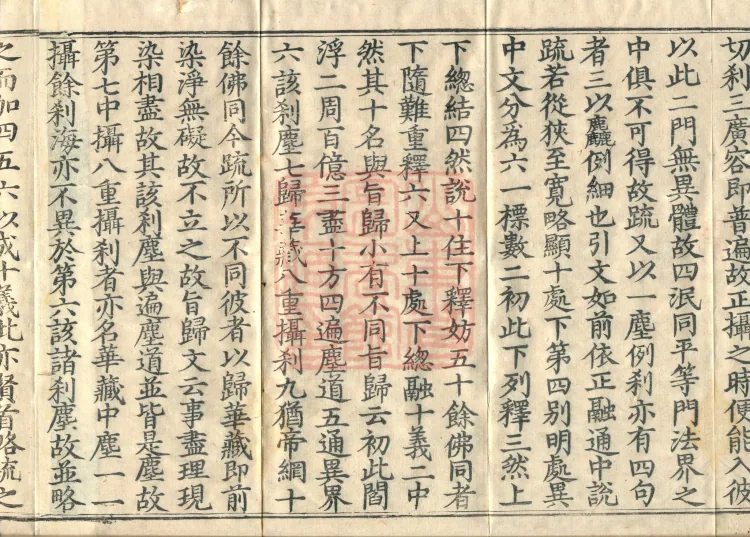 切刹三廣容即普遍故正攝之時便能入彼
以此二門無異體故四泯同平等門法界之
中俱不可得故疏又以一塵例刹亦有四句
者三以麤例細也引文如前依正融通中說
疏若從狹至寬略顯十處下第四別明處異
中文分為六一標數二初此下列釋三然上
下總結四然說十住下釋妨五十餘佛同者
下隨難重釋六又上十處下總融十義二中
然其十名與旨歸小有不同旨歸云初此閻
浮二周百億三盡十方四遍塵道五通異界
六該刹塵七歸華藏八重攝刹九猶帝網十
餘佛同今疏所以不同彼者以歸華藏即前
染淨無礙故不立之故旨歸文云事盡理現
染相盡故其該刹塵與遍塵道並皆是塵故
第七中攝八重攝刹者亦名華藏中塵一一
攝餘刹海亦不異於第六該諸刹塵故並略
之而加四五六以成十義此亦賢首略疏之